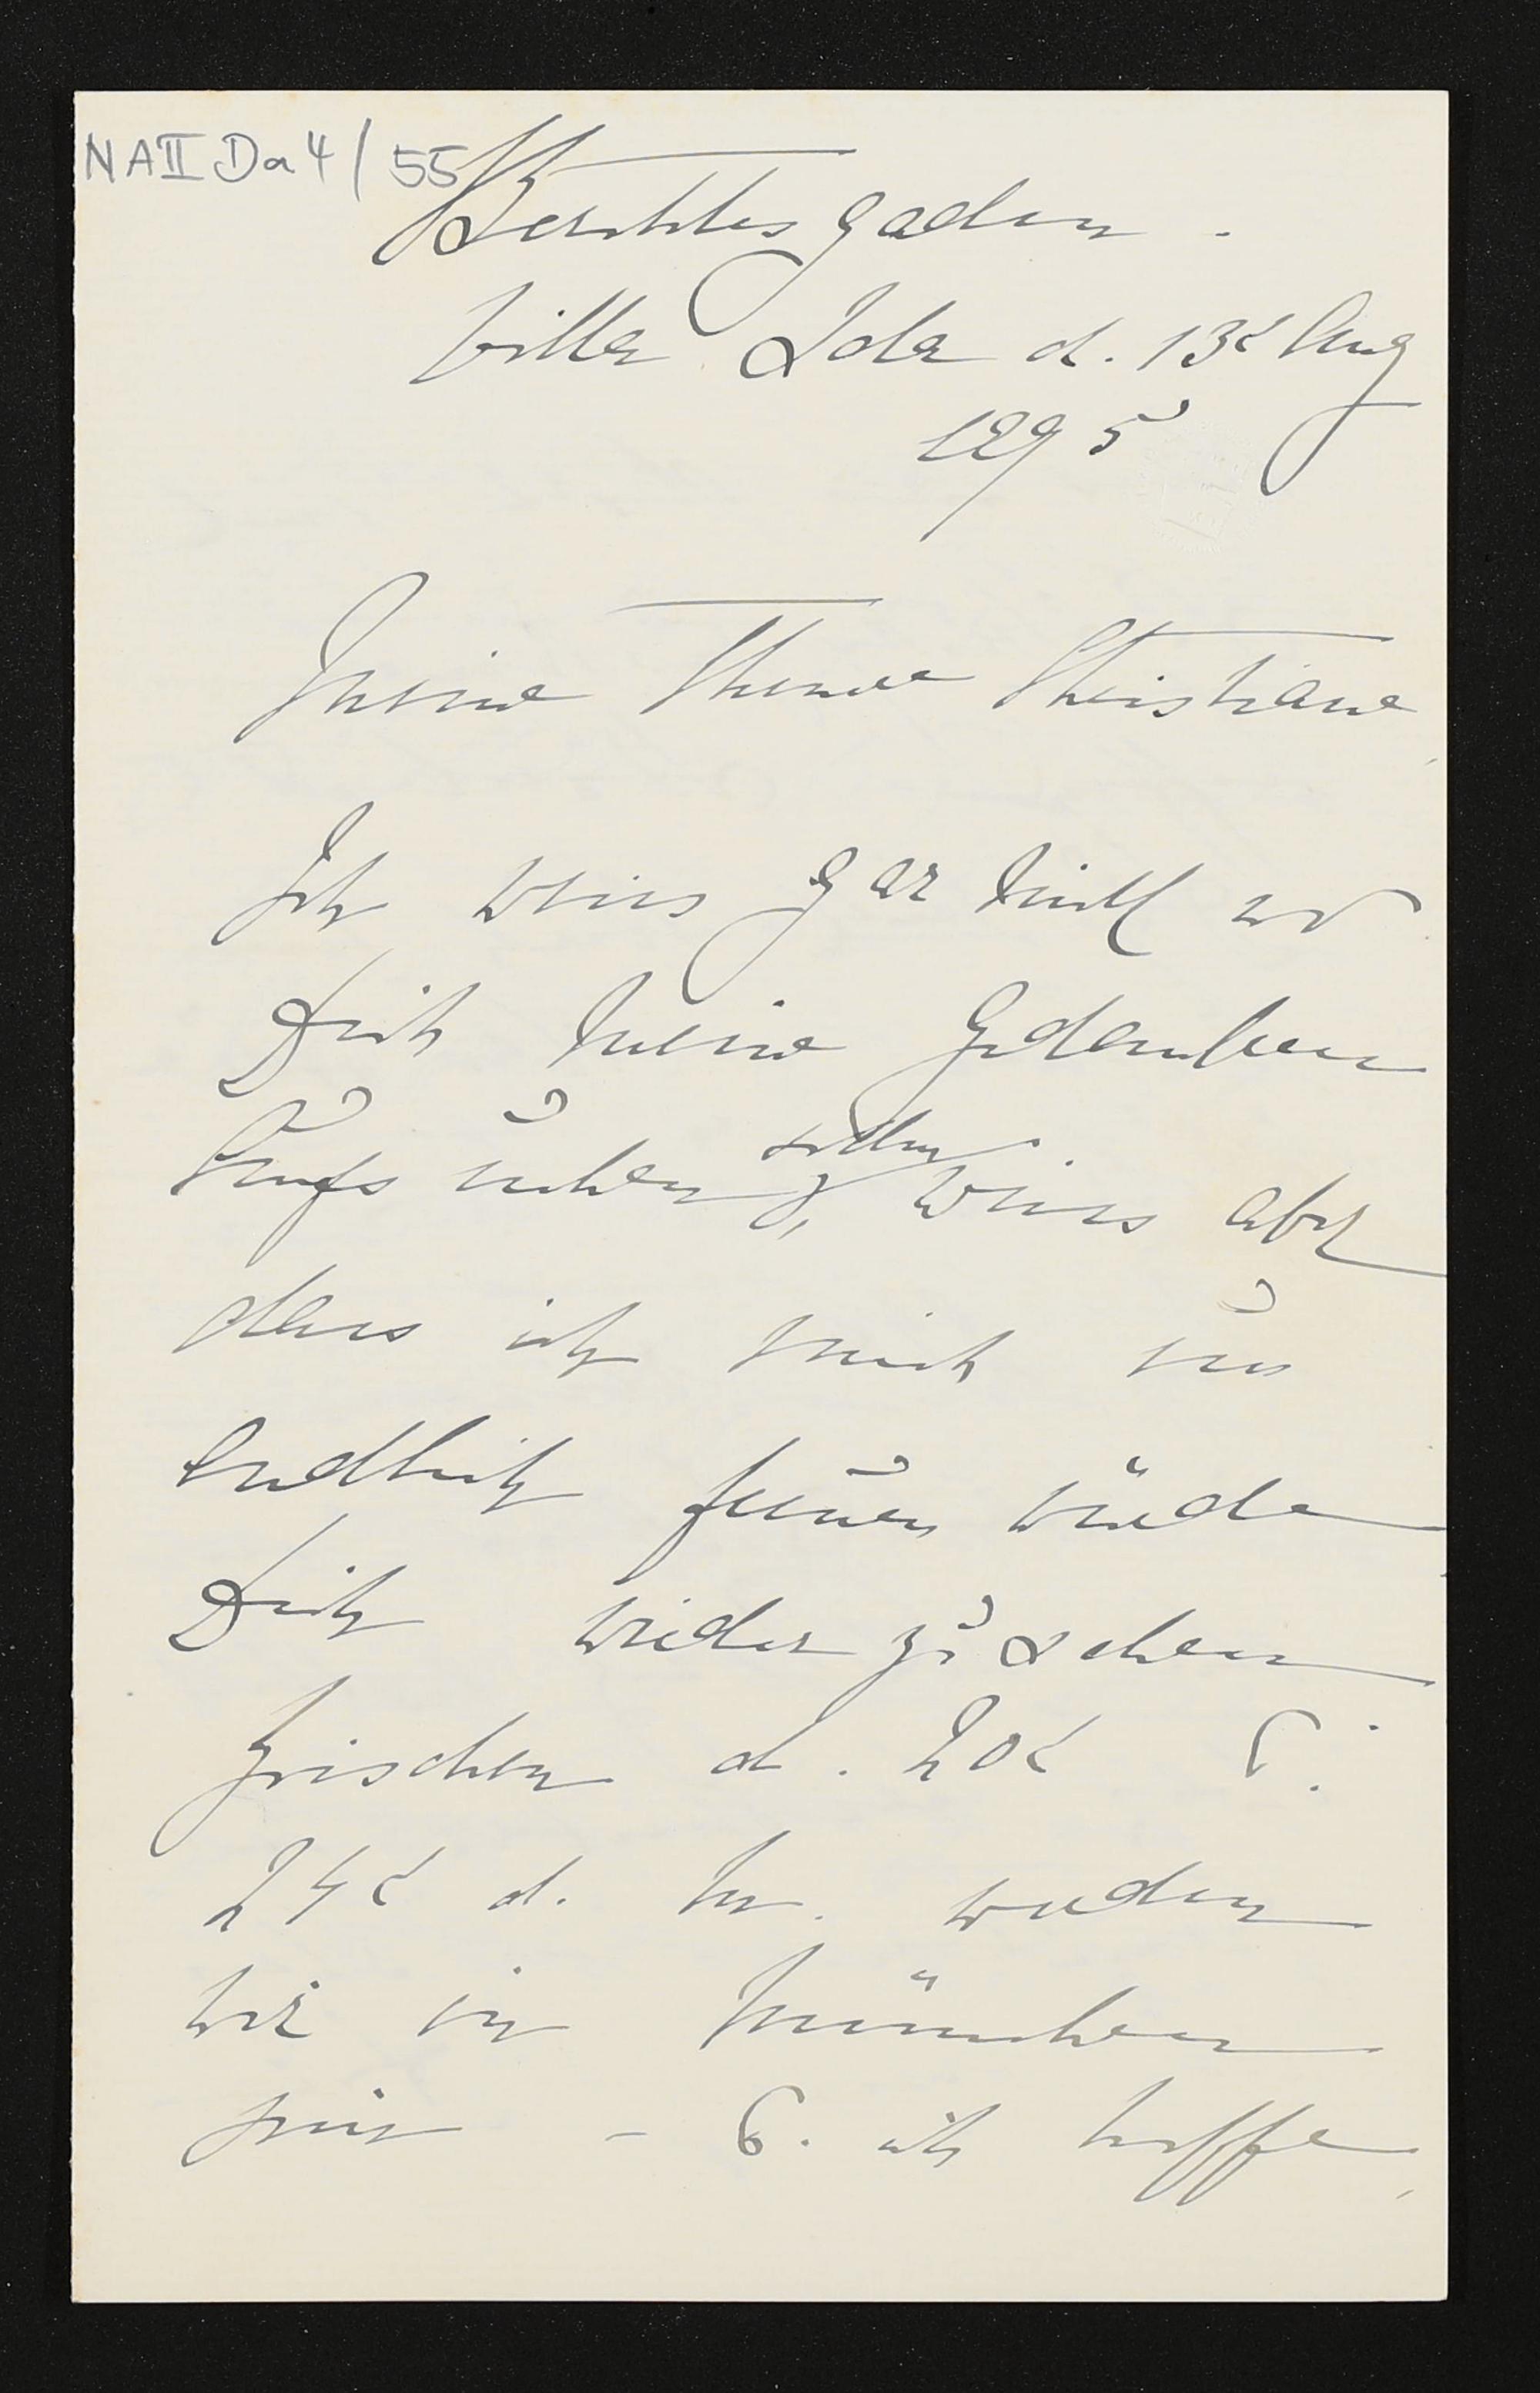 NA II Da 4/55
Berchtesgaden.
Villa Ida d. 13t Aug
1895
Meine Theure Christiane,
Ich weiss gar nicht wo
Dich meine Gedanken
suchen sollen, weiss aber
dass ich mich un
endlich freuen würde
Dich wieder zu sehen
Zwischen d. 20t &.
24t d. M. werden
wir in München
sein – &. ich hoffe,